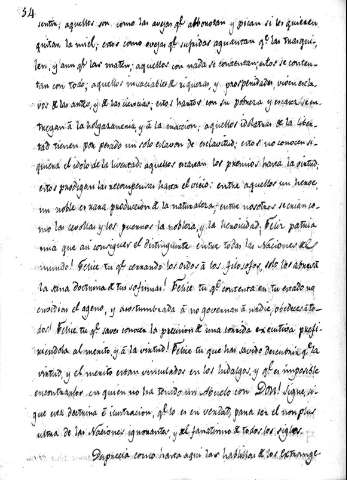 54
contra; aquellos son como las avejas qᵉ alborotan y pican si les quieren
quitar la miel; estos como ovejas qᵉ sufridas aguantan qᵉ las trasqui-
len, y aun qᵉ las maten; aquellos con nada se contentan, estos se conten-
tan con todo; aquellos insaciables de riquezas, y prosperidades, viven escla-
vos de las artes, y de las ciencias; estos hartos con su pobreza y escasez se en-
tregan à la holgazaneria, y à la inaccion; aquellos idolatras de la liber-
tad tienen por pesado un solo eslavon de esclavitud; estos no conocen si-
quiera el idolo de la livertad: aquellos escasean los premios hasta la virtud,
estos prodigan las recompensas hasta el vicio: entre aquellos un heroe
un noble es rara produccion de la naturaleza; entre nosotros se crian co-
mo las cevollas y los puerros la nobleza, y la heroicidad. Feliz patria
mia que asi consigues el distinguirte entre todas las Naciones del
mundo! Felice tu qᵉ cerrando los oidos à los filosofos, solo los abres à
la sana doctrina de tus sofismas! Felice tu qᵉ contenta con tu estado no
envidias el ageno, y acostumbrada à no governar à nadie, obedeces à to-
dos! Felice tu qᵉ saves conocer la precision de una corroida executoria prefi-
riendola al merito, y à la virtud! Felice tu que has savido descubrir qᵉ la
virtud, y el merito estan vinculados en los hidalgos, y qᵉ es imposible
encontrarlos en quien no ha tenido un Abuelo con Don! Sigue, si-
gue esta doctrina è ilustracion, qᵉ lo es en verdad, para ser el non plus
ultra de las Naciones ignorantes, y del fanatismo de todos los siglos.
Desprecia como hasta aqui las hablillas de los extrange-